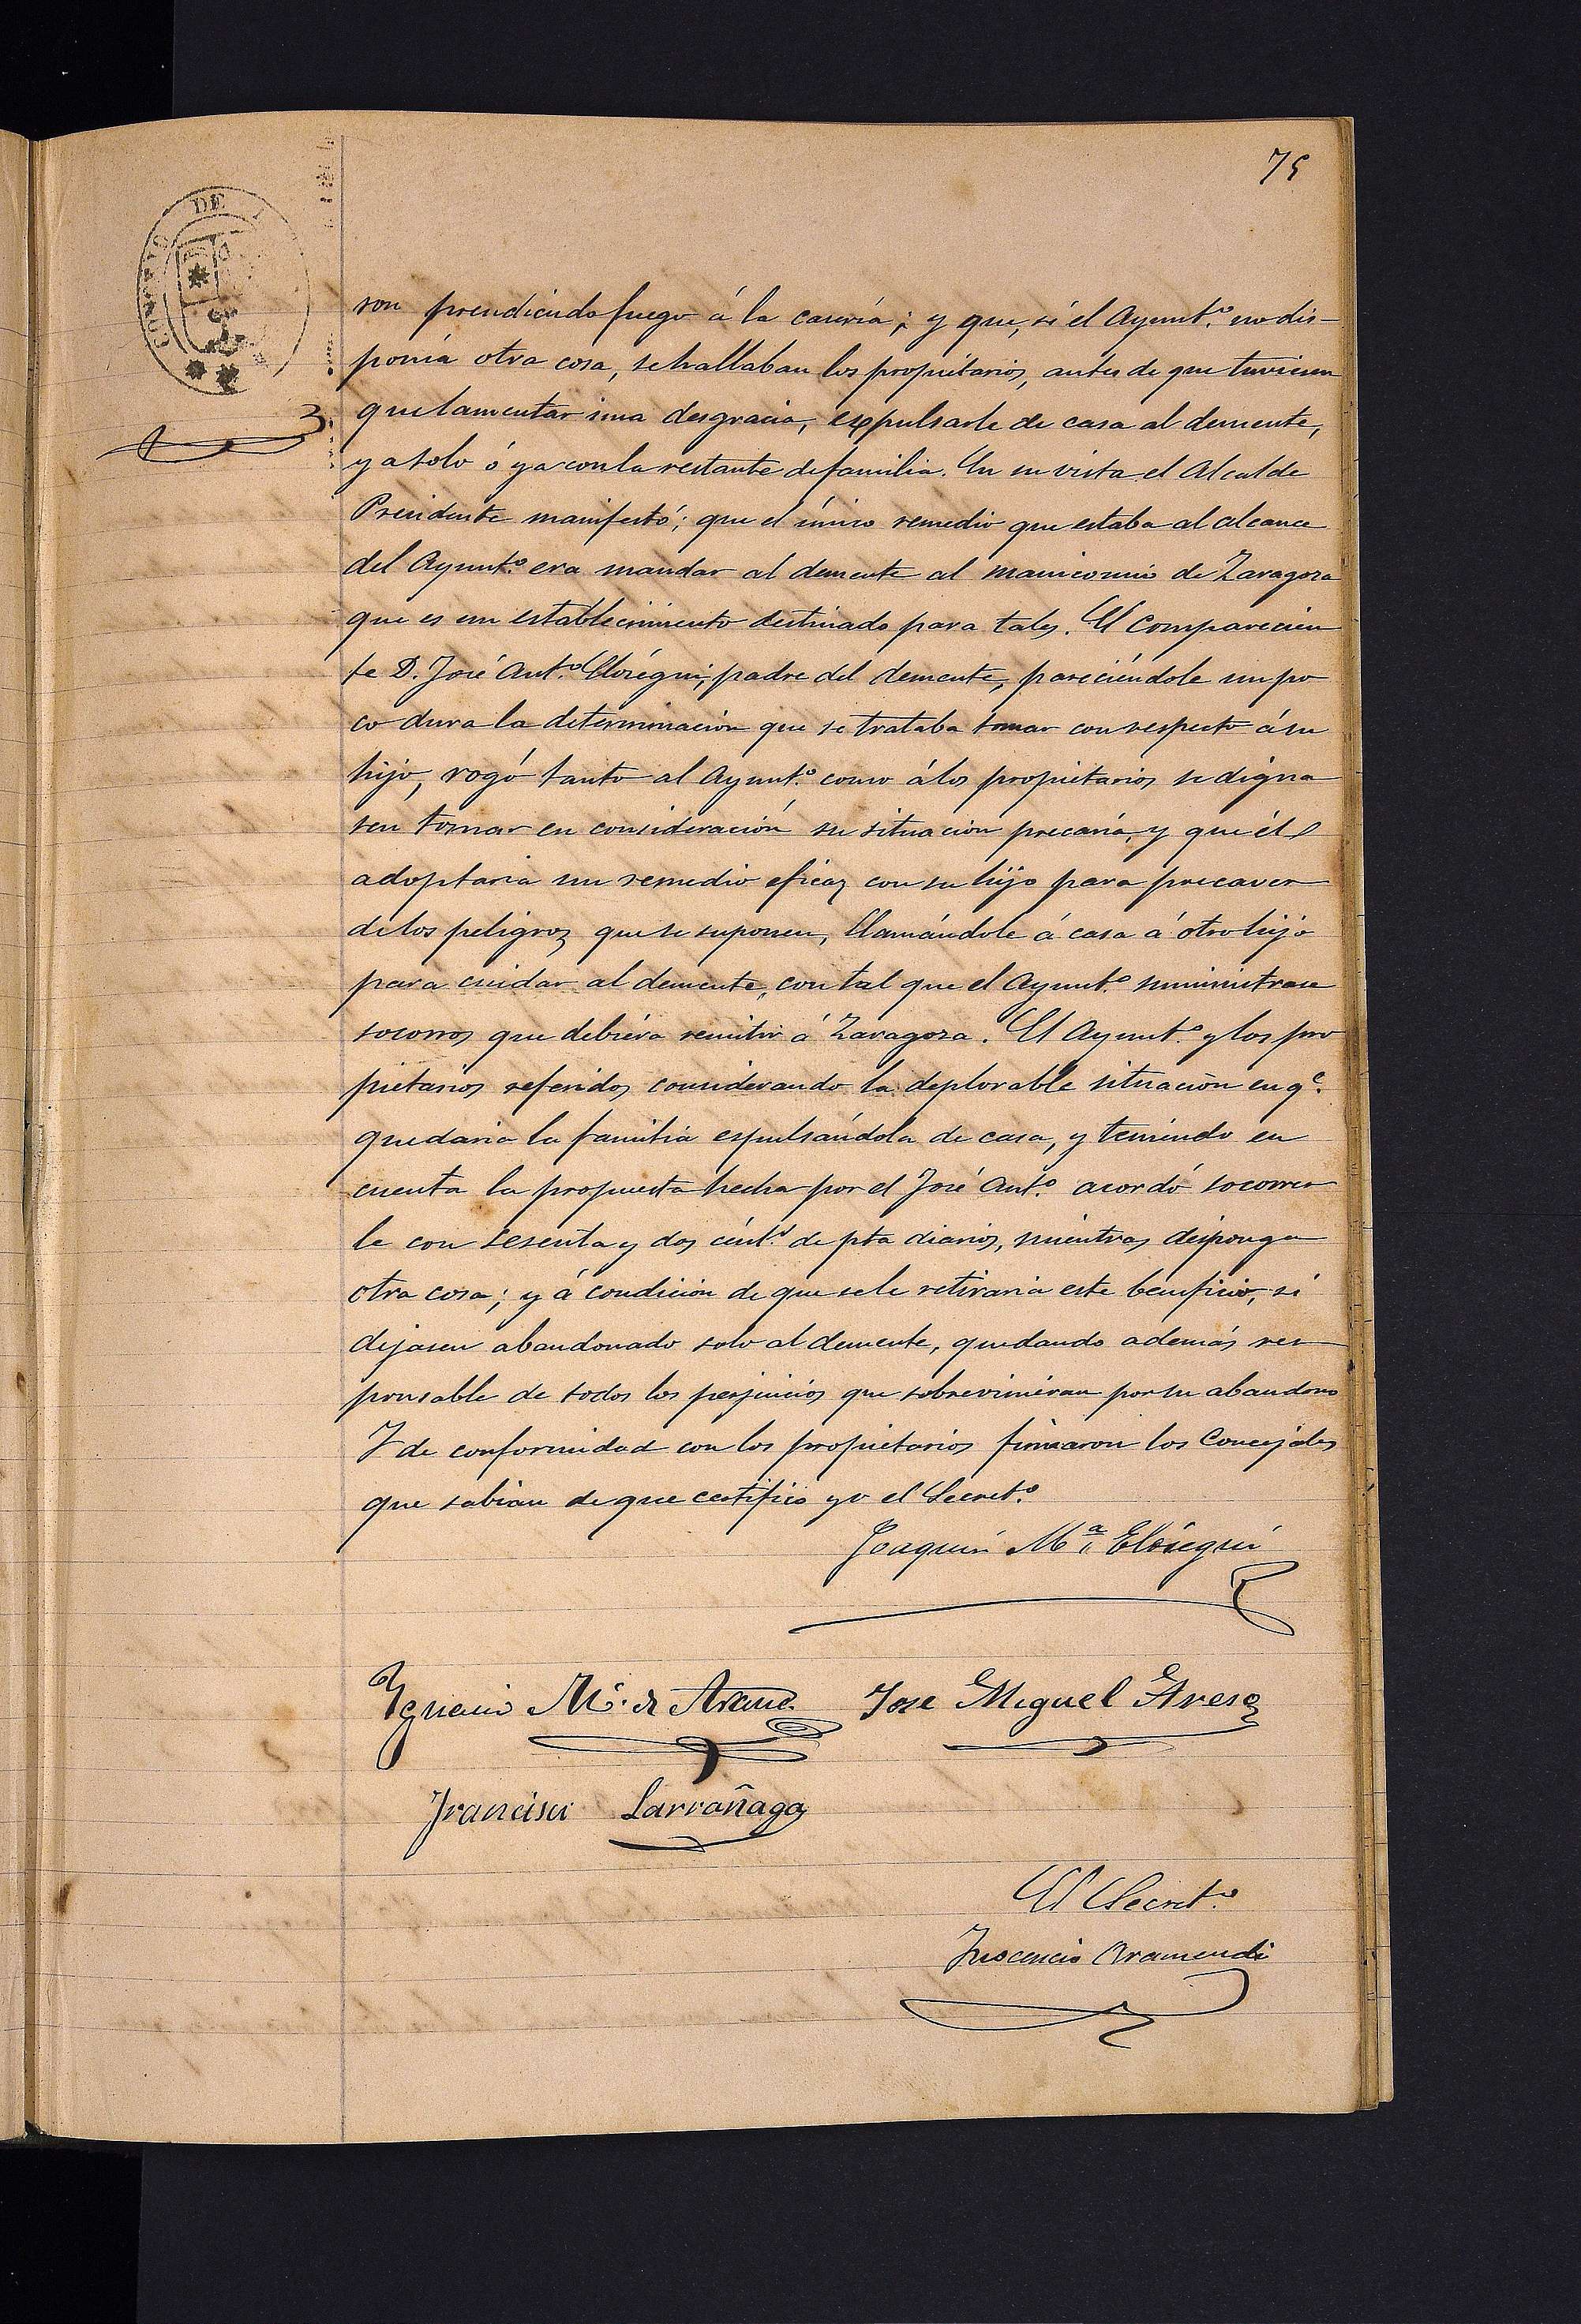 75
DE
son prendiendo fuego á la casería; y que, si el Ayunt.º no dis-
ponía otra cosa, se hallaban los propietarios, antes de que tuviesen
que lamentar una desgracia, expulsarle de casa al demente,
ya solo ó ya con la restante de familia. En su vista el Alcalde
Presidente manifestó; que el único remedio que estaba al alcance
del Ayunt.º era mandar al demente al manicomio de Zaragoza
que es un establecimiento destinado para tales. El Comparecien
te D. José Ant.º Elósegui, padre del demente, pareciéndole un po
co dura la determinación que se trataba tomar con respecto á su
hijo, rogó tanto al Ayunt.º como á los propietarios se digna
sen tomar en consideración su situación precaria, y que él
adoptaria un remedio eficaz con su hijo para precaver
de los peligros que se suponen, llamándole á casa á otro hijo
para cuidar al demente, con tal que el Ayunt.º suministrase
socorros que debiera remitir á Zaragoza. El Ayunt.º y los pro
pietarios referidos considerando la deplorable situación en q.e
quedaria la familia espulsándola de casa, y teniendo en
cuenta la propuesta hecha por el José Ant.º acordó socorrer
le con sesenta y dos cént.s de pta diarios, mientras disponga
otra cosa; y á condición de que se le retiraria este beneficio, si
dejasen abandonado solo al demente, quedando además res
ponsable de todos los perjuicios que sobrevinieran por su abandono
Y de conformidad con los propietarios firmaron los Concejales
que sabian de que certifico yo el Secret.º
Joaquin M.ª Elósegui
Ignacio M.ª de Jose Miguel Aresoz
Francisco Larrañaga
El Secret.º
Inocencio Aramendi